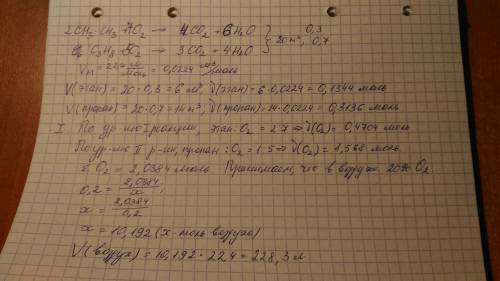 2CH₃-CH₃ 7O₂ → 4CO₂ + 6H₂O } 0,3
C₃H₈ 5O₂ → 3CO₂ + 4H₂O } 20 м³, 0,7
Vм = 22,4 л/моль = 0,0224 м³/моль
V(этан) = 20·0,3 = 6 м³, ν(этан) = 6·0,0224 = 0,1344 моль
V(пропан) = 20·0,7 = 14 м³, ν(пропан) = 14·0,0224 = 0,3136 моль
I По ур-ию I реакции, этан : O₂ = 2:7 ⇒ ν(O₂) = 0,4704 моль
По ур-ию II р-ии, пропан : O₂ = 1:5 ⇒ ν(O₂) = 1,568 моль
O₂ = 2,0384 моль Принимаем, что в воздухе 20% O₂
0,2 = 2,0384/x ;
x = 2,0384/0,2
x = 10,192 (x - моль воздуха)
V(воздух) = 10,192 · 22,4 = 228,3 л